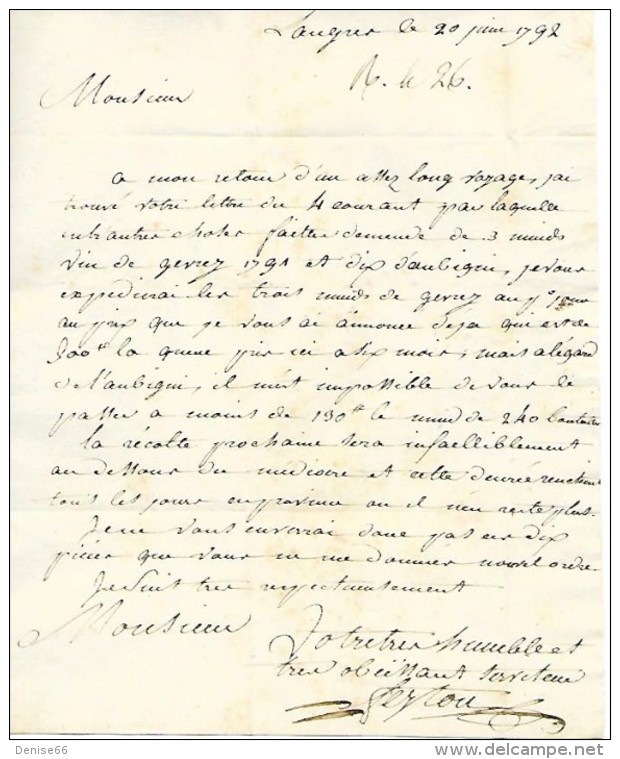 Langres le 20 juin 1792
R. le 26.
Monsieur
a mon retour d'un assez long voyage, jai
trouvé votre lettre du 4 courant par laquelle
entrautres choses faittes demende de 3 muids
vin de gevrey 1791 et dix d'aubigni, je vous
expedirai les trois muids de gevrey au jour
au prix que je vous ai annoncé deja qui est de
300 la queue pris ici a six mois, mais alégard
de l'aubigni, il m'est impossible de vous le
passer a moins de 130 le muid de 240 bouteilles
la récolte prochaine sera infaelliblement
au dessous du médiocre et cette denrée renchérit
tous les jours en province ou il n'en reste plus.
Je ne vous enverrai donc pas ces dix
pièces que vous ne me donniez nouvel ordre.
Je suit tres respectueusement
Monsieur
Votre tres humble et
tres obéissant serviteur
Denise66
www.delcampe.net